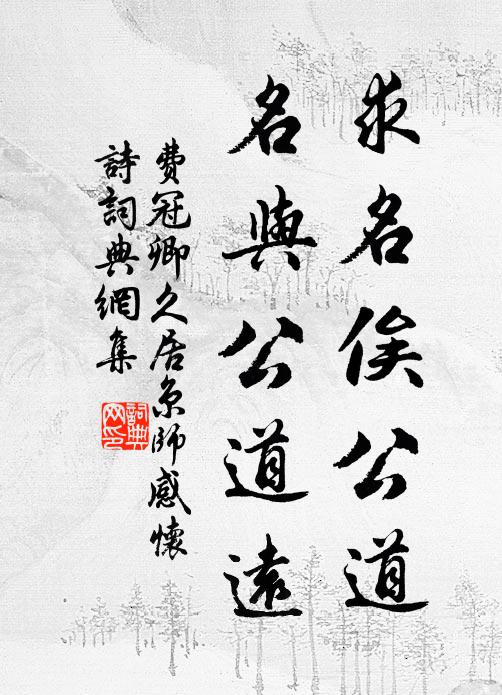 求名俟公道
名與公道遠
費冠卿久居京師感懷
詩詞典網集
詞典网印